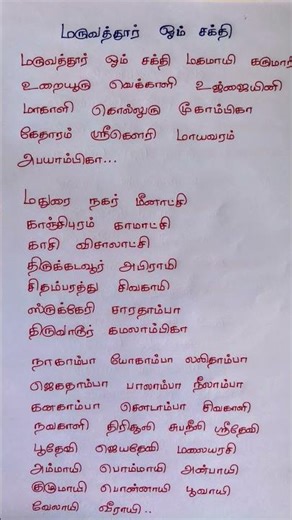 மருவத்தூர் ஓம் சக்தி
மருவத்தூர் ஓம் சக்தி மகமாயி கருமாரி
உறையூரு வெக்காளி உஜ்ஜையினி
மாகாளி கொல்லூரு மூகாம்பிகா
கேதாரம் ஸ்ரீகௌரி மாயவரம்
அபயாம்பிகா...
மதுரை நகர் மீனாட்சி
காஞ்சிபுரம் காமாட்சி
காசி விசாலாட்சி
திருக்கடவூர் அபிராமி
சிதம்பரத்து சிவகாமி
ஸ்ருக்கேரி சாரதாம்பா
திருவாரூர் கமலாம்பிகா
நாகாம்பா யோகாம்பா லலிதாம்பா
ஜெகதாம்பா பாலாம்பா நீலாம்பா
கனகாம்பா சௌடாம்பா சிவகாளி
நவகாளி திரிசூலி சுபநீலி ஸ்ரீதேவி
பூதேவி ஜெயதேவி மலையரசி
அம்மாயி பொம்மாயி அன்பாயி
குழுமாயி பொன்னாயி பூவாயி
வேலாயி வீராயி..